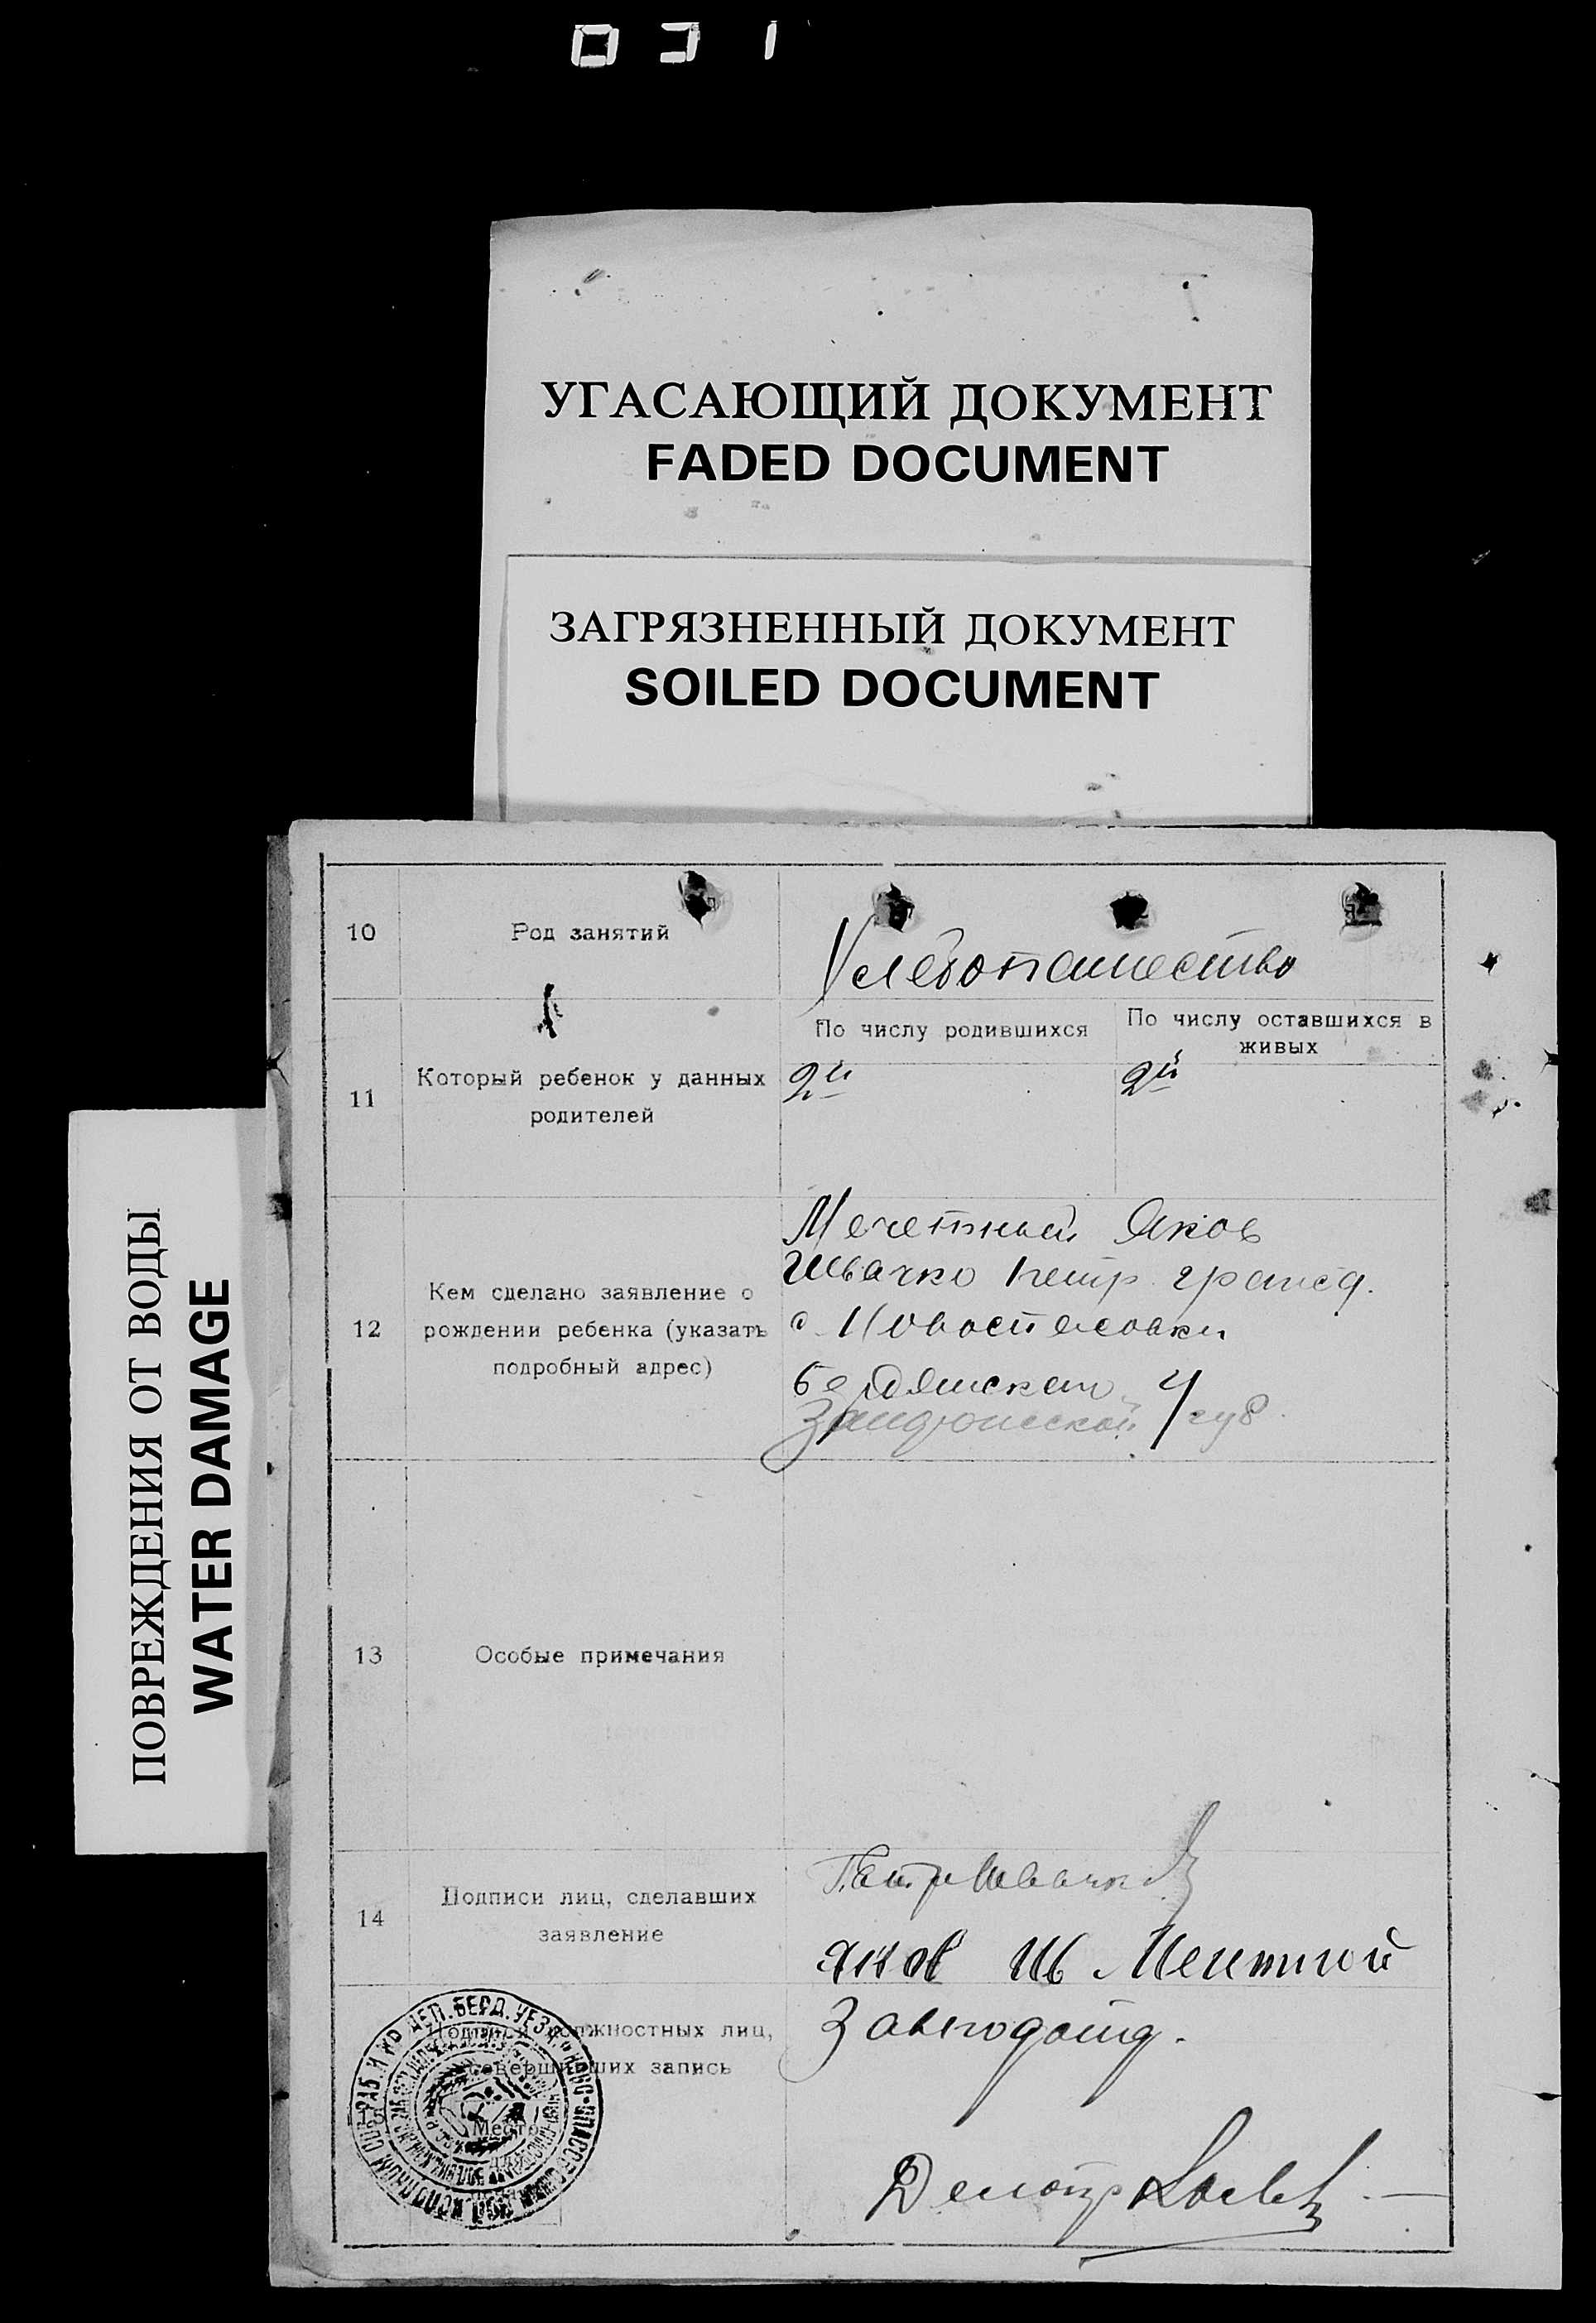 031
УГАСАЮЩИЙ ДОКУМЕНТ
FADED DOCUMENT
ЗАГРЯЗНЕННЫЙ ДОКУМЕНТ
SOILED DOCUMENT
ПОВРЕЖДЕНИЯ ОТ ВОДЫ
WATER DAMAGE
10 Род занятий
Хлебопашество
11 Который ребенок у данных
родителей
По числу родившихся
По числу оставшихся в
живых
2й
2й
12 Кем сделано заявление о
рождении ребенка (указать
подробный адрес)
Мечетный Яков
Швачко Петр гражд.
с. Новоспасовки
Бердянского у
Запорожской губ.
13 Особые примечания
14 Подписи лиц, сделавших
заявление
Петр Швачко
Яков Мечтной
15 Подписи должностных лиц,
совершивших запись
Место